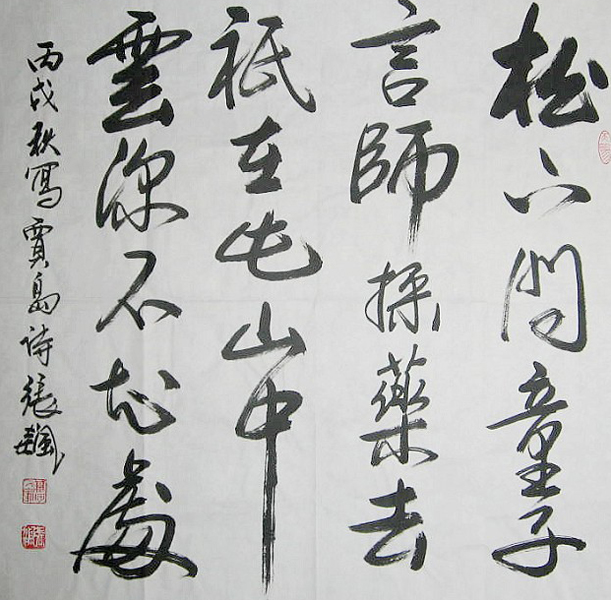 松下問童子
言師採藥去
祇在此山中
雲深不知處
丙戌秋寫賈島詩張